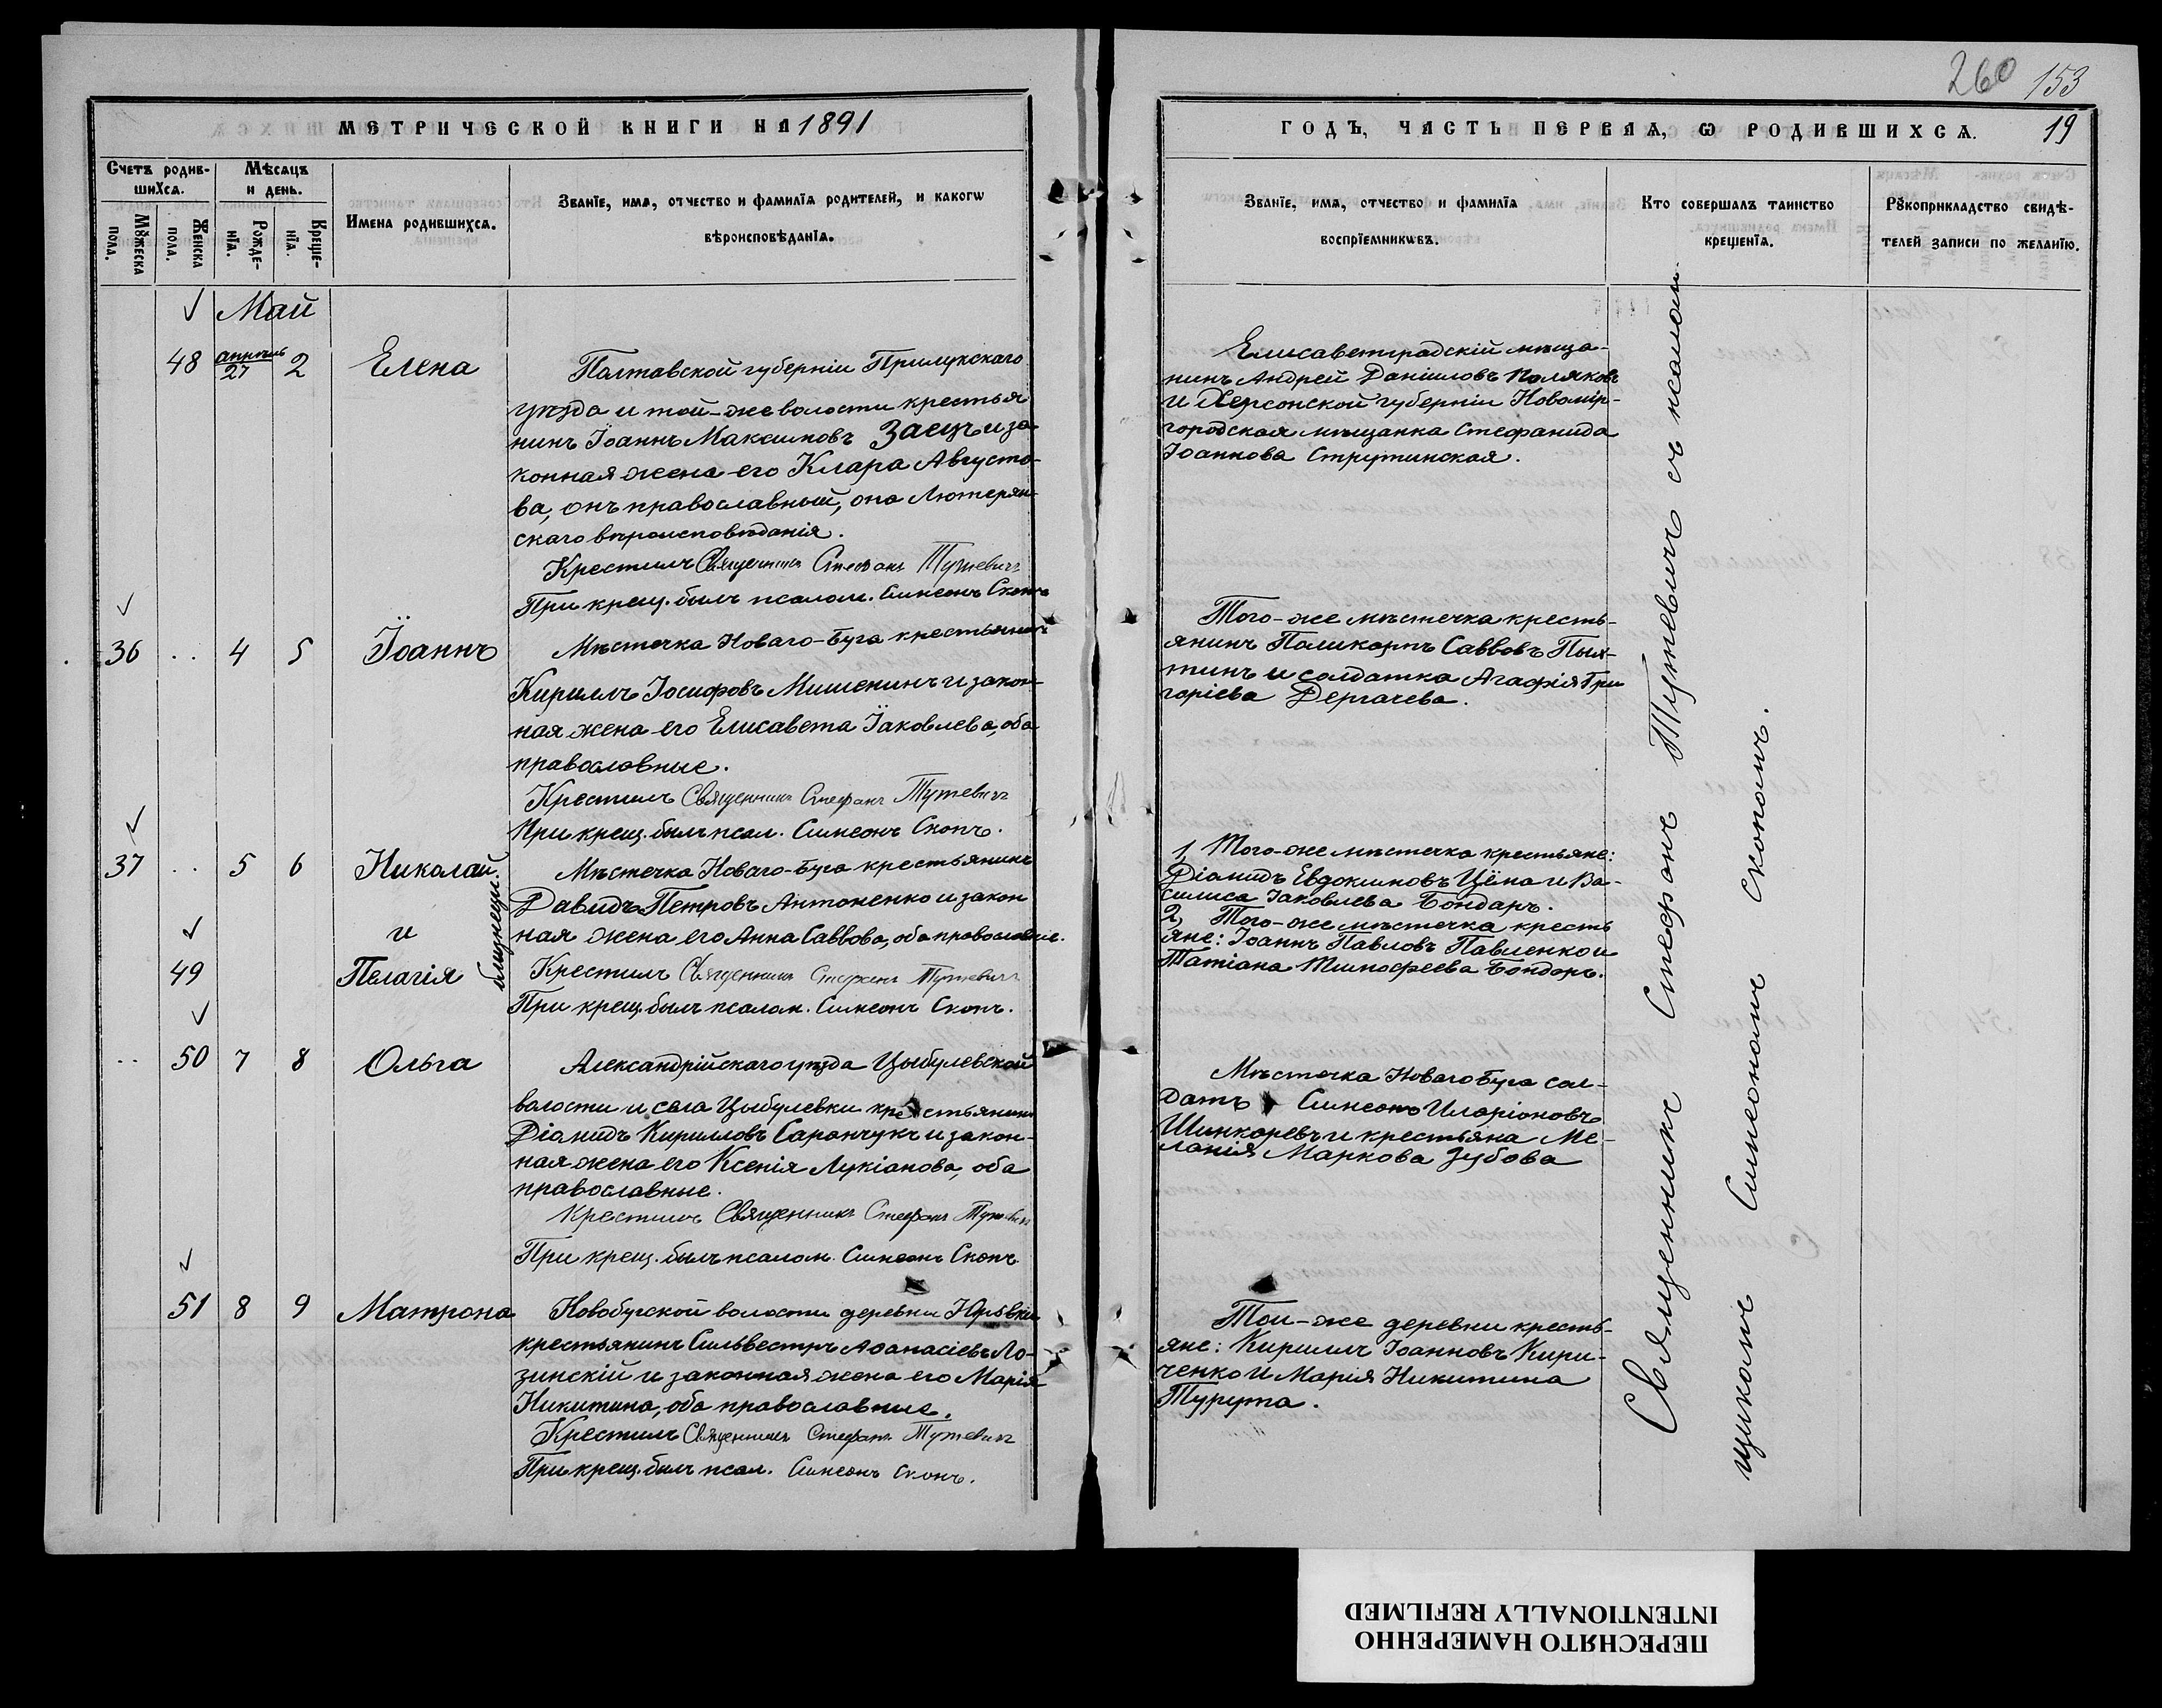 260 153
МЕТРИЧЕСКОЙ КНИГИ НА 1891
ГОДЪ, ЧАСТЬ ПЕРВАЯ, Ѡ РОДИВШИХСѦ. 19
Счетъ родив-
шихсѧ.
Мѣсѧцъ
и день.
Мꙋжеска
пола.
Женска
пола.
Рожде-
нїѧ.
Креще-
нїѧ.
Имена родившихсѧ.
Званїе, имѧ, отчество и фамилїѧ родителей, и какогѡ
вѣроисповѣданїѧ.
Званїе, имѧ, отчество и фамилїѧ
воспрїемникѡвъ.
Кто совершалъ таинство
крещенїѧ.
Рꙋкоприкладство свидѣ-
телей записи по желанїю.
Май
48 апрѣль 27 2 Елена
Полтавской губерніи Прилукскаго
уѣзда и той-же волости крестья
нинъ Іоаннъ Максимовъ Заецъ и за
конная жена его Клара Августо-
ва, онъ православный, она Лютеран-
скаго вѣроисповѣданія.
Крестилъ Священникъ Стефанъ Тутевичъ
При крещ. былъ псалом. Симеонъ Скопъ
Елисаветградскій мѣща-
нинъ Андрей Даніиловъ Поляковъ
и Херсонской губерніи Новомир-
городская мѣщанка Стефанида
Іоаннова Струтинская.
36 .. 4 5 Іоаннъ
Мѣстечка Новаго-Буга крестьянинъ
Кириллъ Іосифовъ Мишенинъ и закон-
ная жена его Елисавета Іаковлева, оба
православные.
Крестилъ Священникъ Стефанъ Тутевичъ
При крещ. былъ псал. Симеонъ Скопъ.
Того-же мѣстечка кресть-
янинъ Поликарпъ Саввовъ Пых-
тинъ и солдатка Агафія Гри
горіева Дергачева.
37 .. 5 6 Николай
и
49 Пелагія
близнецы.
Мѣстечка Новаго-Буга крестьянинъ
Давидъ Петровъ Антоненко и закон
ная жена его Анна Саввова, оба православные.
Крестилъ Священникъ Стефанъ Тутевичъ
При крещ. былъ псалом. Симеонъ Скопъ.
1, Того-же мѣстечка крестьяне:
Діамидъ Евдокимовъ Цёна и Ва-
силиса Іаковлева Бондарь.
2, Того-же мѣстечка кресть
яне: Іоаннъ Павловъ Павленко и
Татіана Тимофеева Бондарь.
.. 50 7 8 Ольга
Александрійскаго уѣзда Цыбулевской
волости и села Цыбулевки крестьянинъ
Діамидъ Кирилловъ Саранчукъ и закон-
ная жена его Ксенія Лукіанова, оба
православные.
Крестилъ Священникъ Стефанъ Тутевичъ
При крещ. былъ псалом. Симеонъ Скопъ.
Мѣстечка Новаго Буга сол-
датъ Симеонъ Иларіоновъ
Шинкоревъ и крестьяна Ме-
ланія Маркова Зубова
51 8 9 Матрона
Новобугской волости деревни Юрьевки
крестьянинъ Сильвестръ Аѳанасіевъ Ло-
зинскій и законная жена его Марія
Никитина, оба православные.
Крестилъ Священникъ Стефанъ Тутевичъ
При крещ. былъ псал. Симеонъ Скопъ.
Той-же деревни кресть-
яне: Кириллъ Іоанновъ Кири-
ченко и Марія Никитина
Турута.
Священникъ Стефанъ Тутевичъ съ псалом-
щикомъ Симеономъ Скопомъ.
ПЕРЕСНЯТО НАМЕРЕННО
INTENTIONALLY REFILMED